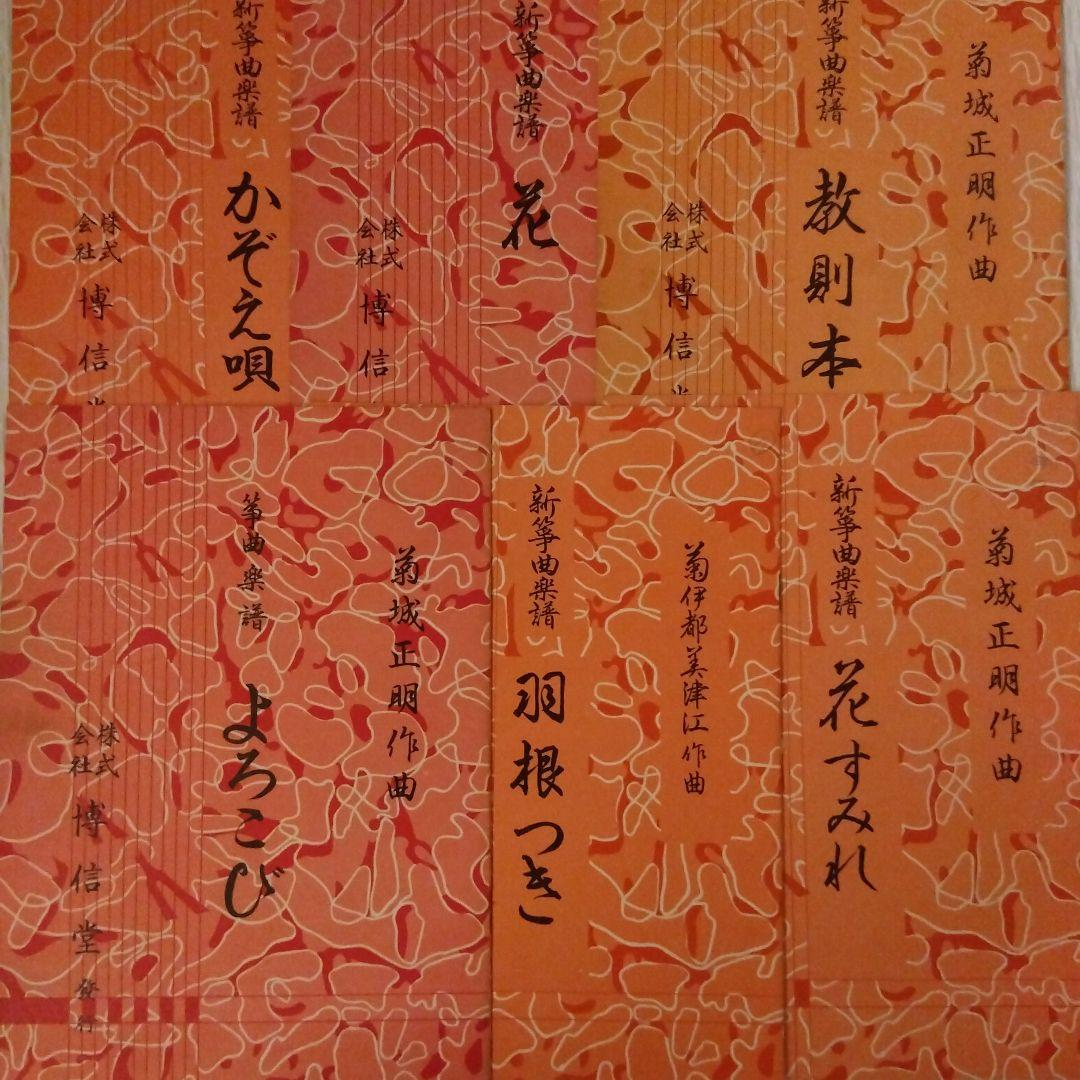 新箏曲楽譜
かぞえ唄
株式
会社
博信
新箏曲楽譜
花
株式
会社
博信
菊城正明作曲
新箏曲楽譜
教則本
株式
会社
博信
菊城正明作曲
箏曲楽譜
よろこび
株式
会社
博信堂発行
菊伊都美津江作曲
新箏曲楽譜
羽根つき
菊城正明作曲
新箏曲楽譜
花すみれ